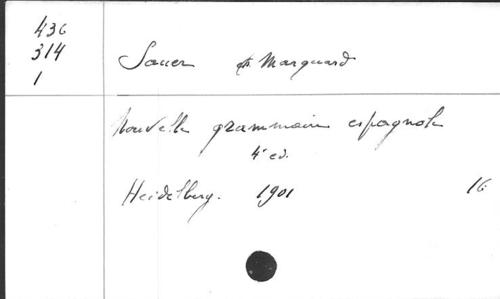 436
314
1
Sauer Marquard
Nouvelle grammaire espagnole
4e ed.
Heidelberg. 1901 16